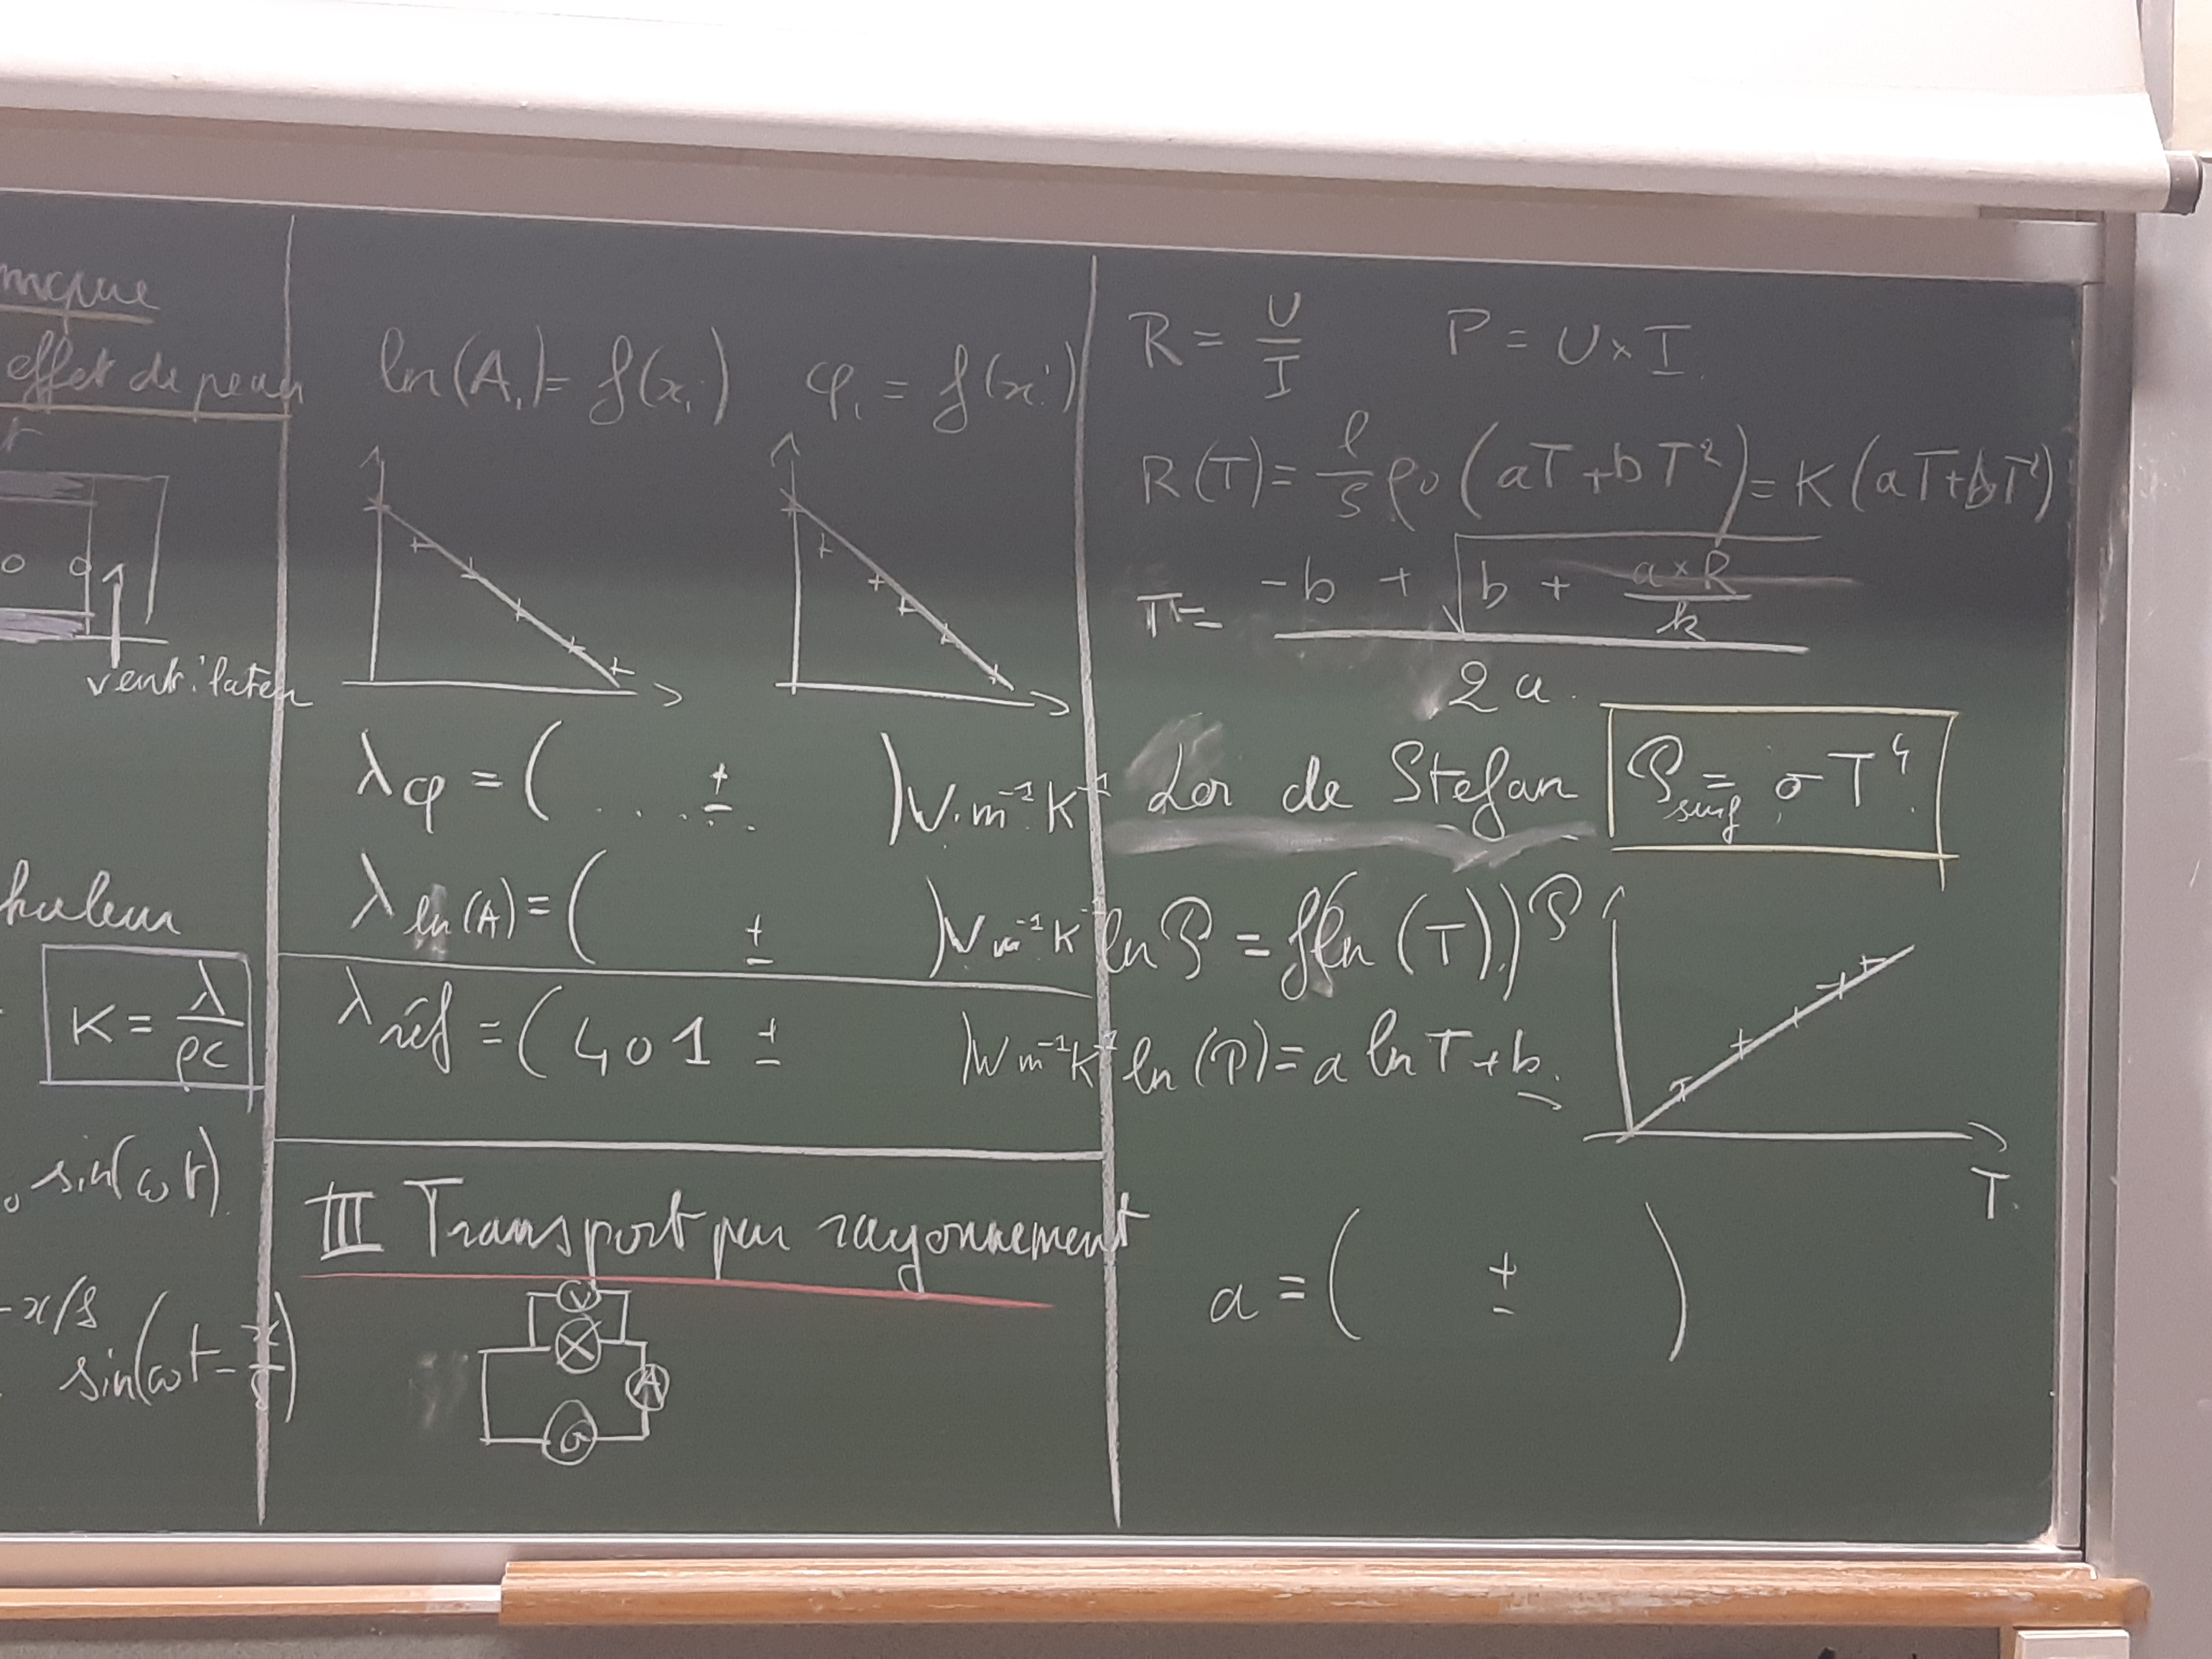 mique
effet de peau
ventilateu
K = λ/ρc
sin(ωt)
-x/δ
sin(ωt - x/δ)
ln(A₁) = f(x₁) φ₁ = f(x₁)
λφ = ( . . . ± . . . ) W.m⁻¹.K⁻¹
λln(A) = ( ± ) W m⁻¹ K⁻¹
λréf = (401 ± ) W m⁻¹ K⁻¹
III Transport par rayonnement
V
A
G
R = U/I P = U × I
R(T) = l/S ρ₀ (aT + bT²) = K(aT + bT²)
T = (-b + √(b + (a×R)/k)) / 2a.
Loi de Stefan P surf = σT⁴.
ln P = f(ln(T)) P
ln(P) = a ln T + b.
T.
a = ( ± )